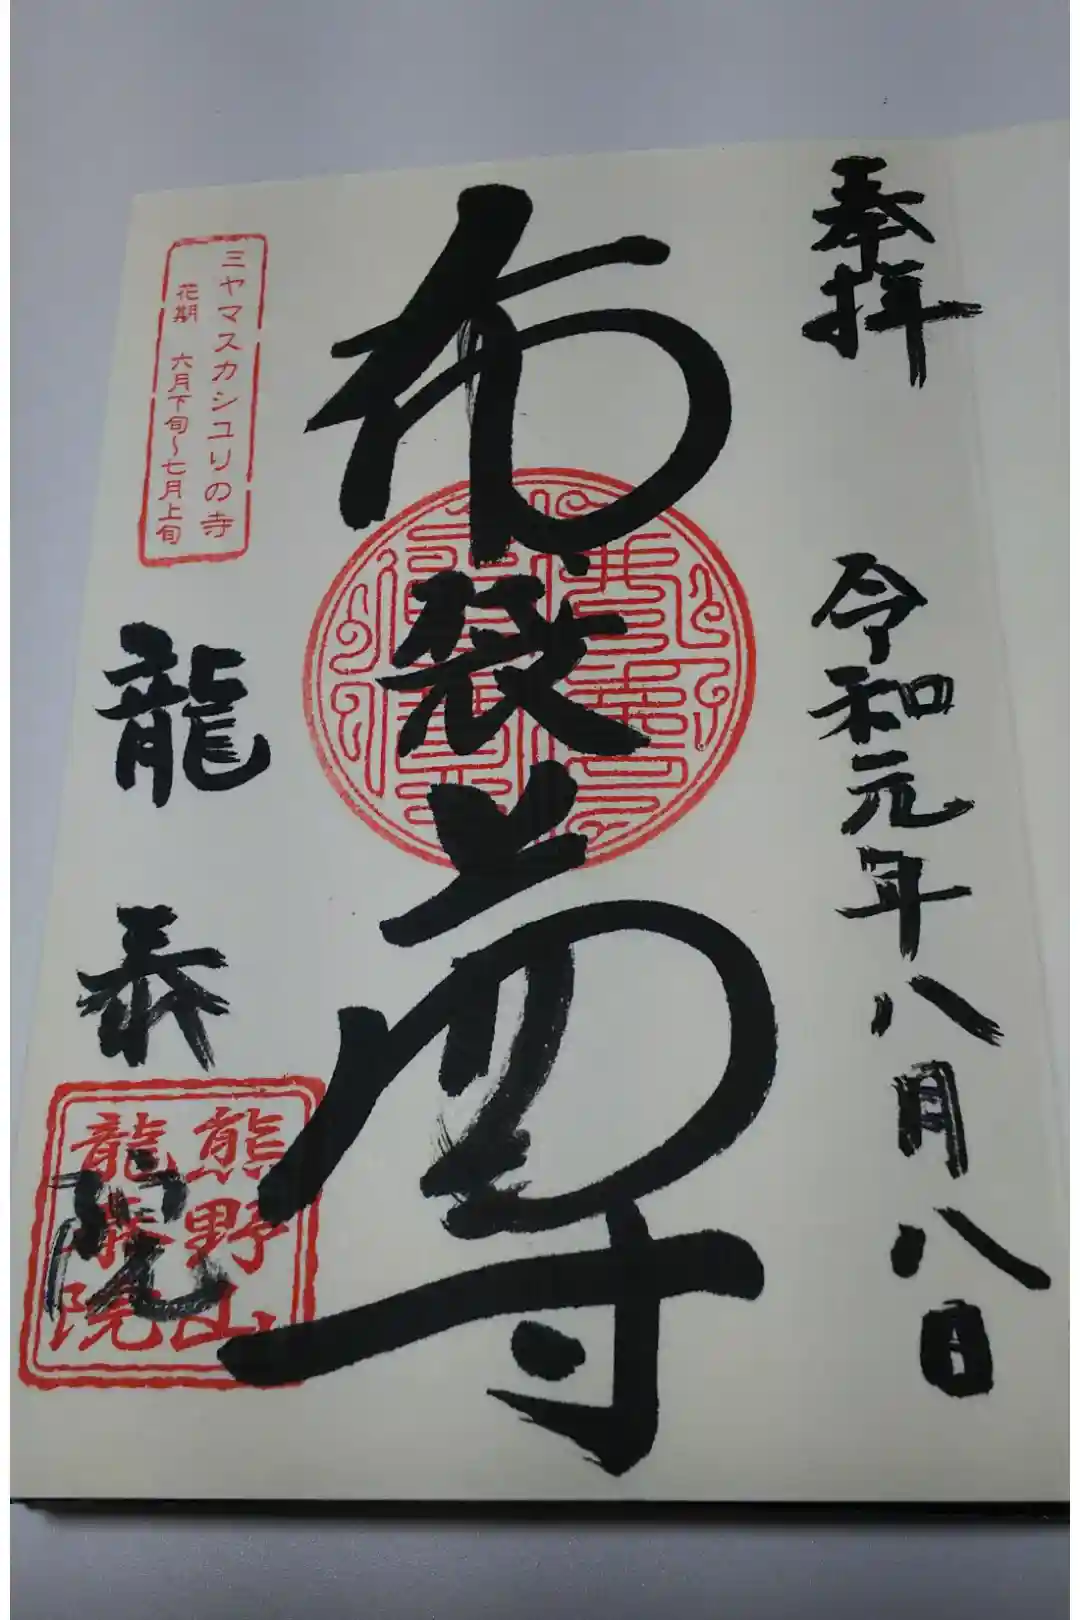 奉拝
令和元年八月八日
布袋尊
ミヤマスカシユリの寺
花期 六月下旬~七月上旬
龍泰院
熊野山
龍泰院